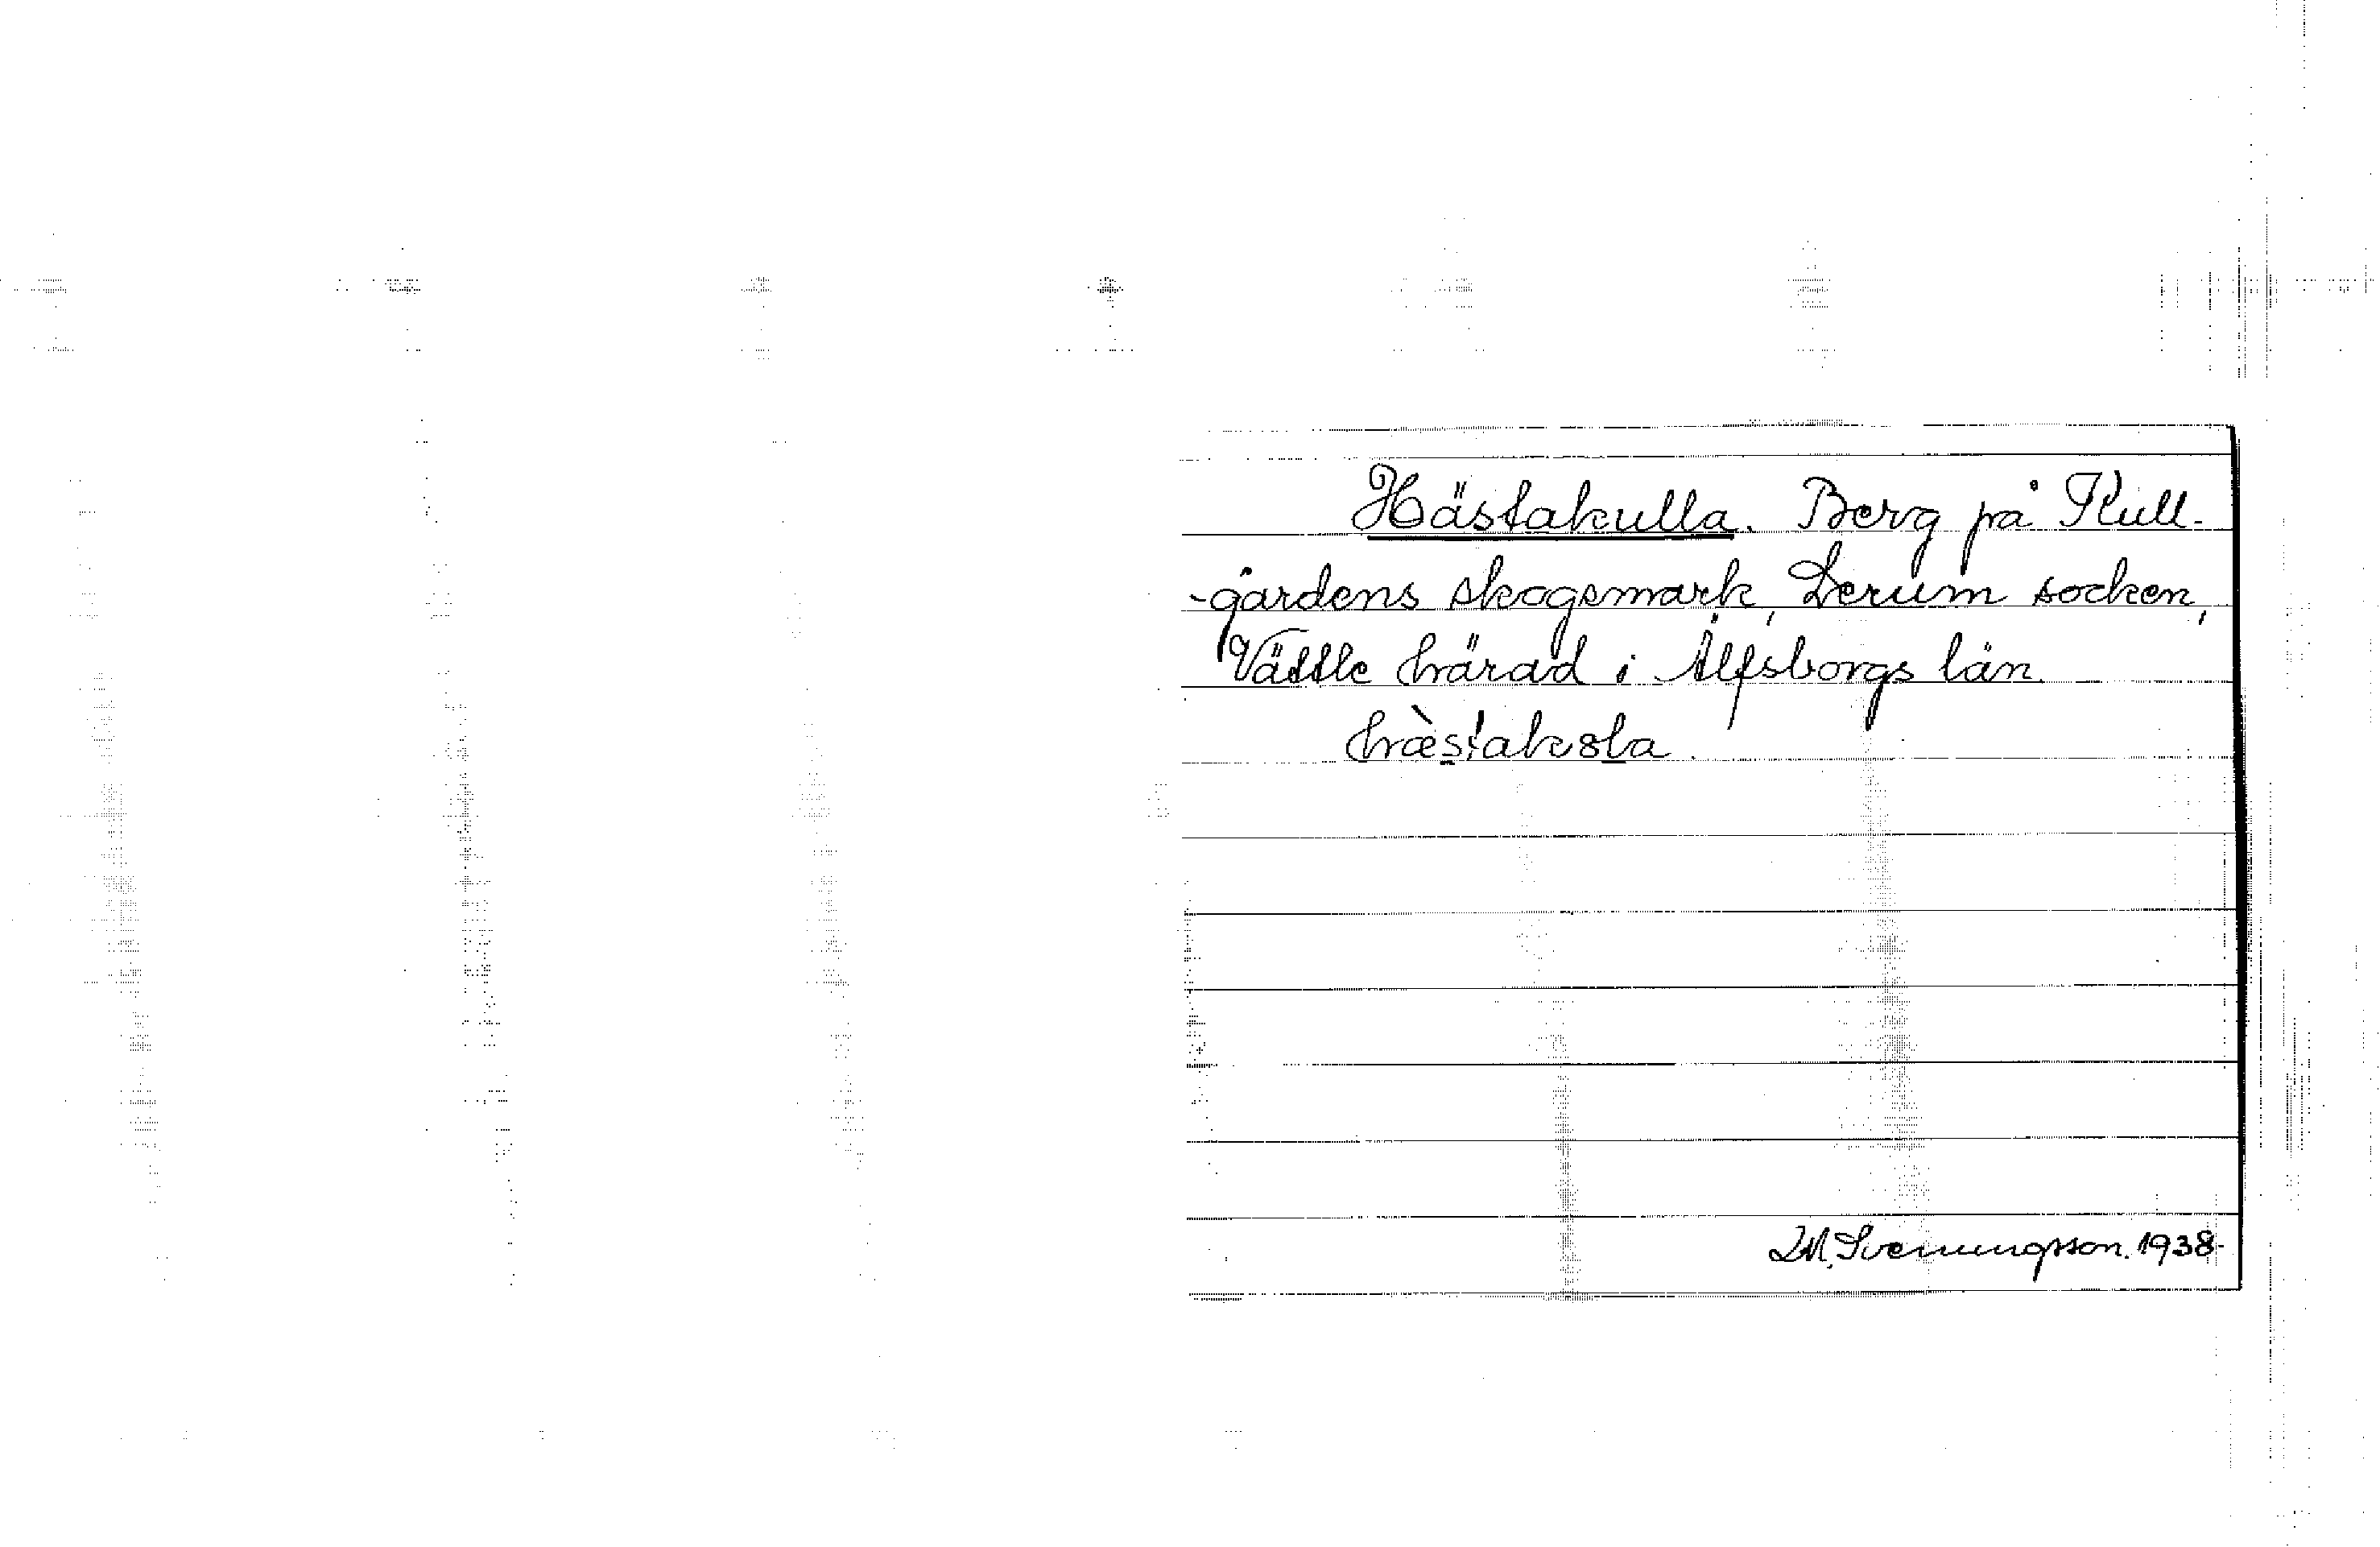 Hästakulla. Berg på Kull-
-gårdens skogsmark, Lerum socken,
Vättle härad i Älfsborgs län.
hæ̀stak8la.
M. Svenungsson. 1938.